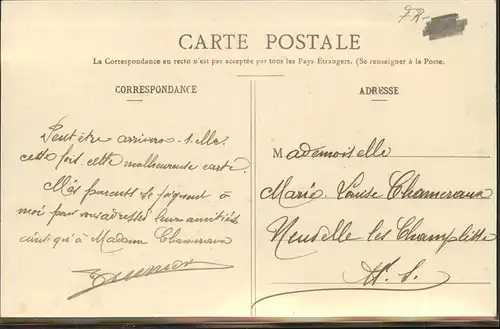 FR-
CARTE POSTALE
La Correspondance au recto n'est pas acceptée par tous les Pays Étrangers. (Se renseigner à la Poste.
CORRESPONDANCE
Peut être arrivera-t-elle
cette fois, cette malheureuse carte.
Mes parents se joignent à
moi pour vous adresser leurs amitiés
ainsi qu'à Madame
ADRESSE
Mademoiselle
Marie Louise
Neuvelle les Champlitte
Hte S.